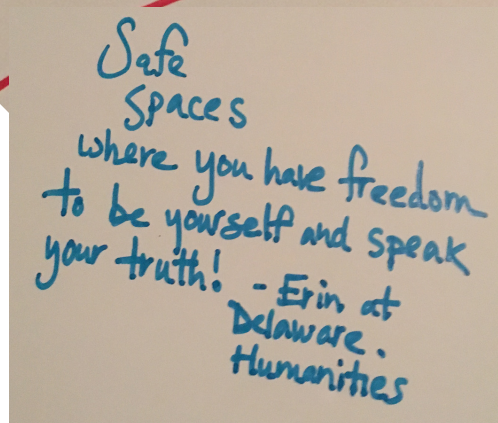 Safe
spaces
where you have freedom
to be yourself and speak
your truth! - Erin at
Delaware.
Humanities